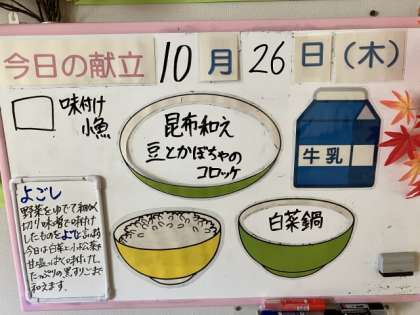 今日の献立 10月26日(木)
味付け
小魚
昆布和え
豆とかぼちゃの
コロッケ
牛乳
白菜鍋
よごし
野菜をゆでて細かく
切り味噌で味付け
したものをよごしと言います
今日は白菜と小松菜を
甘塩っぱく味付けし
たっぷりの黒すりごまで
和えます。